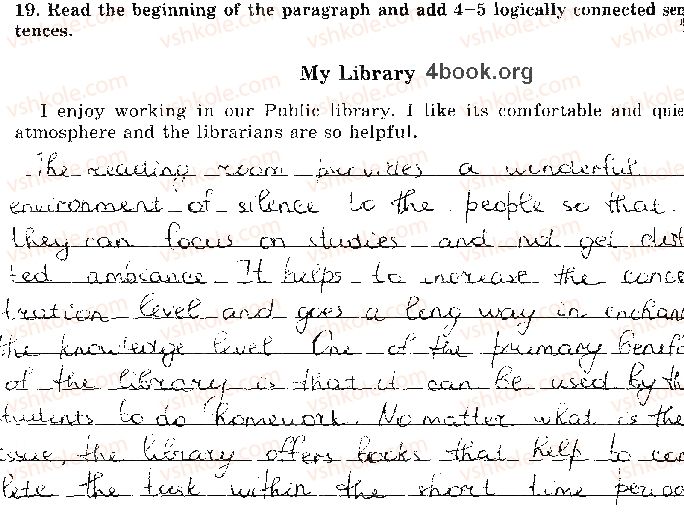 19. Read the beginning of the paragraph and add 4–5 logically connected sen
tences.
My Library 4book.org
I enjoy working in our Public library. I like its comfortable and quie
atmosphere and the librarians are so helpful.
The reading room provides a wonderful
environment of silence to the people so that
they can focus on studies and not get dist
ted ambiance. It helps to increase the conce
tration level and goes a long way in enchan
the knowledge level One of the primary benef
of the library is that it can be used by th
tudents to do homework. No matter what is the
issue, the library offers books that help to com
lete the task within the short time perio